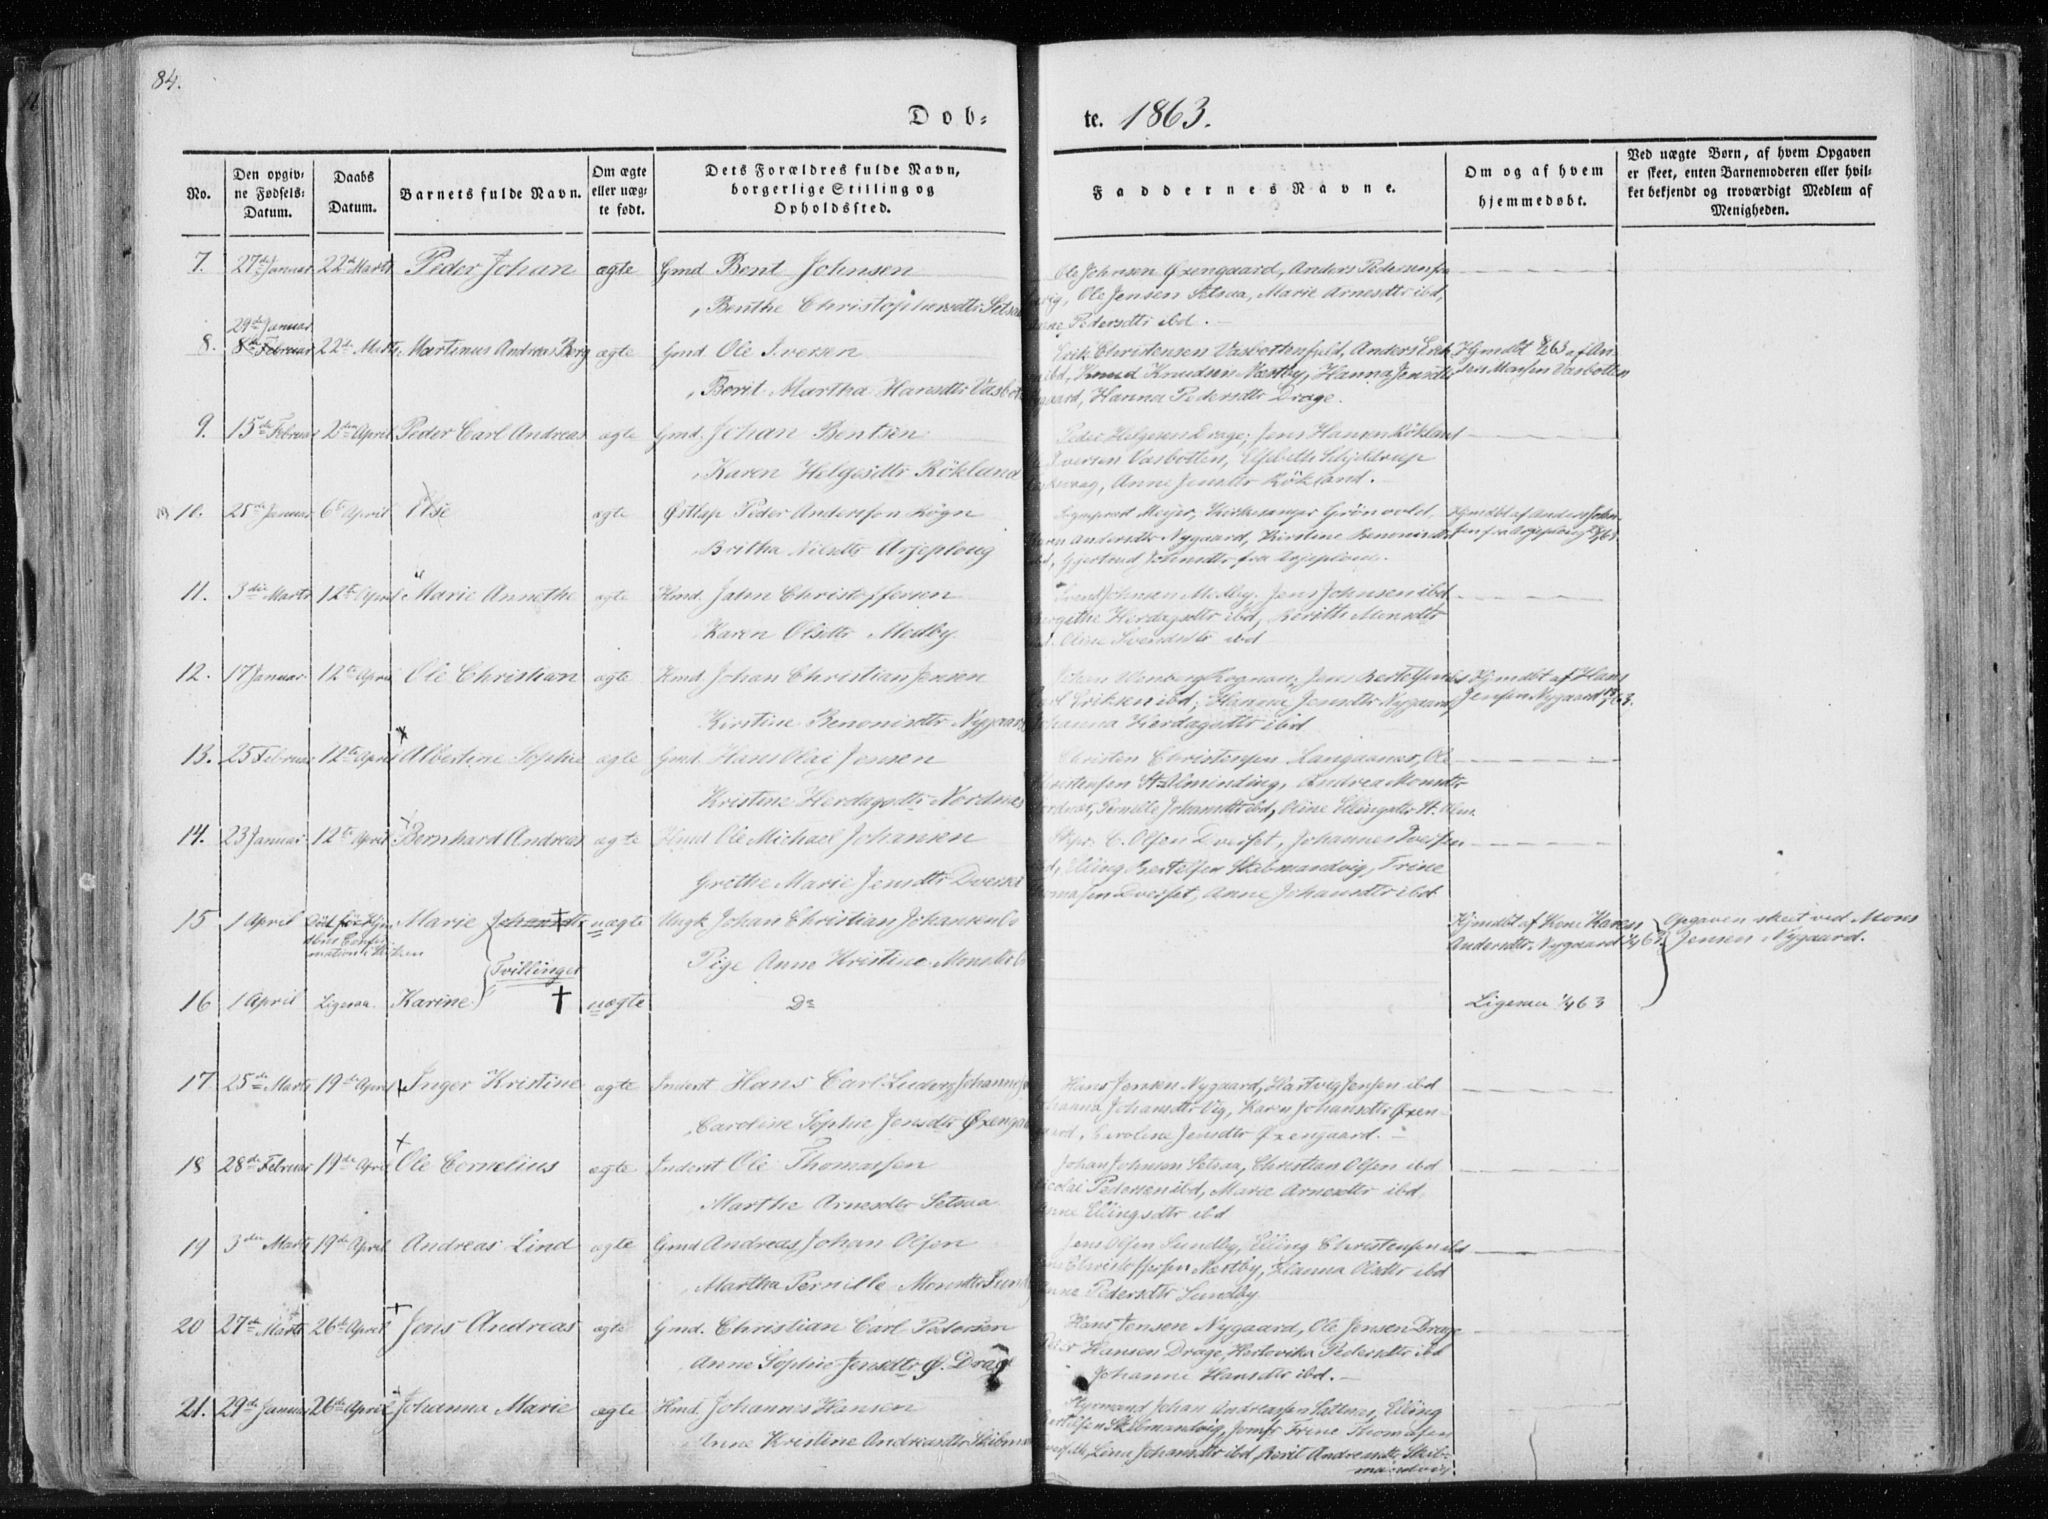 84.
Døb-
te. 1863.
No.
Den opgiv-
ne Fødsels-
Datum.
Daabs
Datum.
Barnets fulde Navn.
Om ægte
eller uæg-
te født.
Dets Forældres fulde Navn,
borgerlige Stilling og
Opholdssted.
Faddernes Navne.
Om og af hvem
hjemmedøbt.
Ved uægte Børn, af hvem Opgaven
er skeet, enten Barnemoderen eller hvil-
ket bekjendt og troværdigt Medlem af
Menigheden.
7. 27de Januar 22de Marts Peder Johan ægte Gmd Bent Johnsen
Benthe Christophersdtr Setsaa
Ole Johnsen Øxengaard, Anders Pedersen fra
Ole Jensen Setsaa, Marie Arnesdtr ibd,
Pedersdtr ibd.
29de Januar
8. 8de Februar 22de Marts Martinus Andreas Borg ægte Gmd Ole Iversen
Berit Martha Hansdtr Vasbot
Erik Christensen Vasbottenfjeld, Anders Erik
ibd, Knud Knudsen Næstby, Hanna Jensdtr
Hanna Pedersdtr Drage.
Hjmdbt af An-
ders Monsen Vasbotten
9. 15de Februar 2den April Peder Carl Andreas ægte Gmd. Johan Bentsen
Karen Helgesdtr Røklund
Peder Helgesen Drage, Jens Hansen Røkland
Iversen Vasbotten, Elsebeth
Anne Jensdtr Røkland.
10. 25de Januar 6te April Else ægte Østlap Peder Andersson Løgn
Britha Nilsdtr Arjeploug
Meyer, Kirkesanger Grönvold
Andersdtr Nygaard, Kirstine Benonisdtr
Gjertrud Johnsdtr fra Arjeploug.
Hjmdbt af Anders John-
sen fra Arjeploug
11. 3die Marts 12te April Marie Annethe ægte Hmd. Jahn Christoffersen
Karen Olsdtr Medby.
Svend Johnsen Medby. Jens Johnsen ibd
Herdagsdtr ibd, Berith Monsdtr
Oline Svendsdtr ibd
12. 17 Januar 12te April Ole Christian ægte Hmd Johan Christian Jensen
Kirstine Benonisdtr Nygaard
Johan Jens Bertelsen
Eriksen ibd, Hanna Jensdtr Nygaard,
Johanna Herdagsdtr ibd
Hjmdbt af Hans
Jensen Nygaard
13. 25 Februar 12te April Albertine Sophie ægte Gmd. Hans Olai Jensen
Kristine Herdagsdtr Nordnæs
Christen Christensen Langaanes, Ole
Christensen St. Alminding, Andrea Monsdtr
Pernille Johansdtr ibd, Oline Ellingsdtr St. Alm.
14. 23 Januar 12te April Bernhard Andreas ægte Hmd Ole Michael Johansen
Grethe Marie Jensdtr Dverset
C. Olsen Dverset, Johannes Iversen
Elling Bertelsen Skibmandvig, Trine
Thomasen Dverset, Anne Johansdtr ibd
15 1 April Död før Hjm
dbs Confir
mation i Kirken Marie Johansdtr uægte Ungk Johan Christian Johansen
Tvillinger Pige Anne Kristine Monsdtr
Hjmdbt af Kone Karen
Andersdtr. Nygaard
Opgaven skeet ved Mons
Jensen Nygaard.
16 1 April Ligesaa. Karine uægte Do
Ligesaa ¼63
17 25de Marts 19de April Inger Kristine ægte Inderst Hans Carl Ludvig Johannes
Caroline Sophie Jensdtr Øxenga
Hans Jensen Nygaard, Hartvig Jensen ibd
Johanna Johansdtr Vig, Karen Johansdtr Øxen-
Caroline Jensdtr Øxengaard.
18 28de Februar 19de April Ole Cornelius ægte Inderst Ole Thomassen
Marthe Arnesdtr Setsaa
Johan Johnsen Setsaa, Christian Olsen ibd
Nicolai Pedersen ibd, Marie Arnesdtr ibd,
Anne Ellingsdtr ibd
19 3die Marts 19de April Andreas Lind ægte Gmd Andreas Johan Olsen
Martha Pernille Monsdtr Sund
Jens Olsen Sundby, Elling Christensen ibd
Christoffersen Næstby, Hanna Olsdtr ibd
Anne Pedersdtr Sundby
20 27de Marts 26de April Jens Andreas ægte Gmd. Christian Carl Pedersen
Anne Sophie Jensdtr Ø. Drage
Hans Jensen Nygaard, Ole Jensen Drage
Peder Hansen Drage, Hertevika Pedersdtr ibd
Johanne Hansdtr ibd.
21. 29de Januar 26de April Johanna Marie ægte Hmd. Johannes Hansen
Anne Kristine Andreasdtr Skibm
Styrmand Johan Andreassen Saltnæs, Elling
Bertelsen Skibmandvig, Jomfr Trine Thomasen
Lina Johansdtr ibd, Berit Andreasdtr Skib-
mandvig